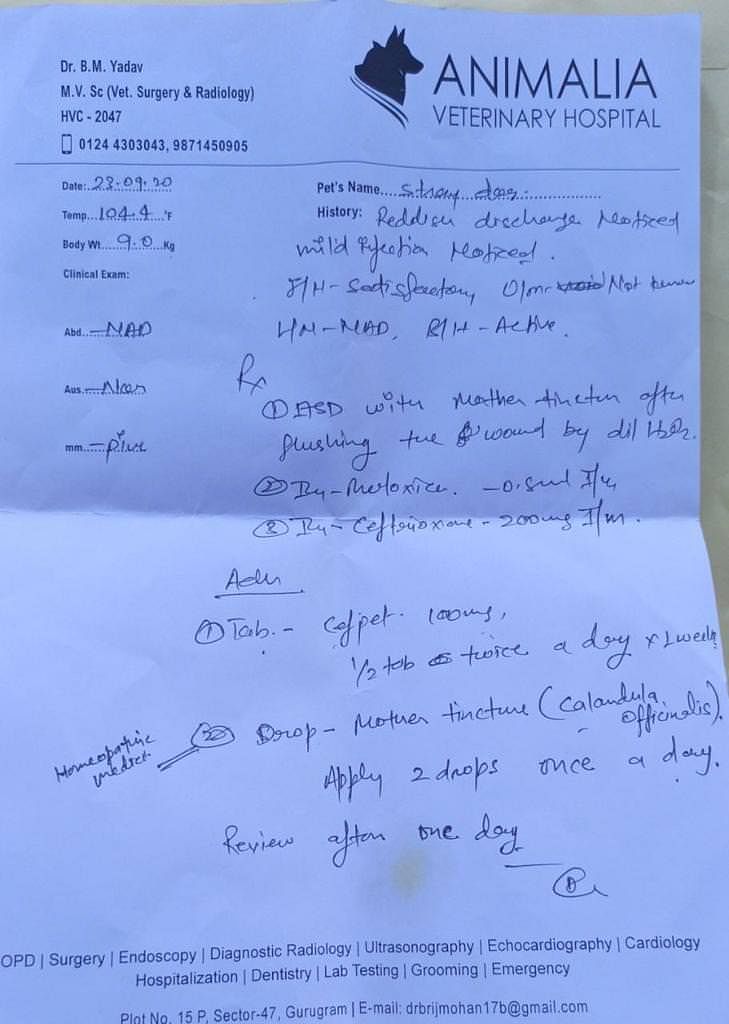 Dr. B.M. Yadav
M.V. Sc (Vet. Surgery & Radiology)
HVC - 2047
0124 4303043, 9871450905
ANIMALIA
VETERINARY HOSPITAL
Date: 23.09.20
Temp. 104.4 °F
Body Wt. 9.0 Kg
Clinical Exam:
Abd. - NAD
Aus.
mm.
Pet's Name stray dog
History: Reddish discharge Noticed
mild Noticed.
- Satisfactory, Not
- NAD, - Active.
Rx
① ASD with Mother tincture after
flushing the wound by dil H2O2.
② - 0.5ml I/M
③ - 200mg I/M.
Adv
① Tab. - Cefpet. 100mg,
1/2 tab twice a day x 1 week
② Drop - Mother tincture (Calandula
officinalis).
Homeopathic
Apply 2 drops once a day.
Review after one day
OPD | Surgery | Endoscopy | Diagnostic Radiology | Ultrasonography | Echocardiography | Cardiology
Hospitalization | Dentistry | Lab Testing | Grooming | Emergency
Plot No. 15 P, Sector-47, Gurugram | E-mail: drbrijmohan17b@gmail.com